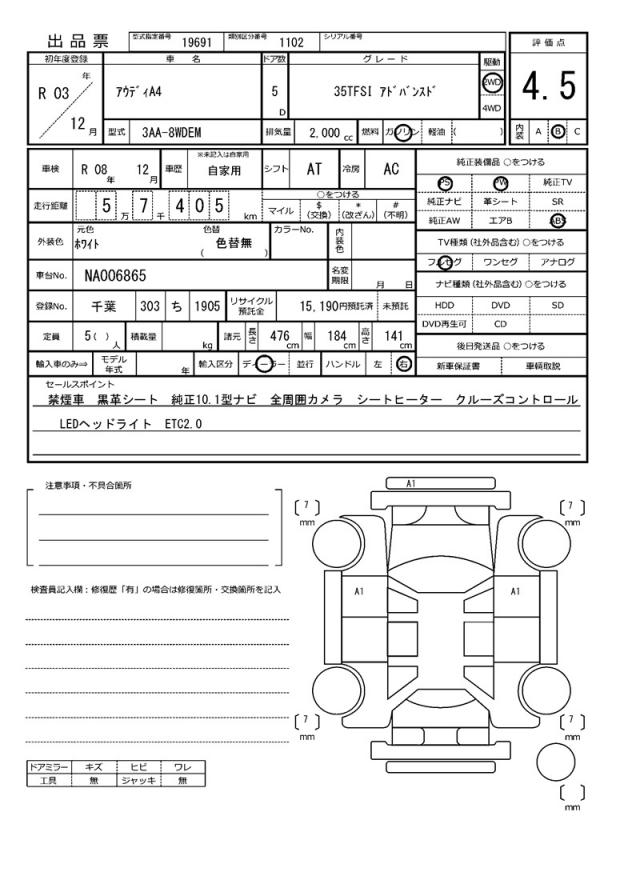 出品票 型式指定番号 19691 類別区分番号 1102 シリアル番号
初年度登録 車名 ドア数 グレード 駆動 評価点
R 03 年 12 月 アウディA4 5 D 35TFSI アドバンスド 2WD 4WD 4.5
型式 3AA-8WDEM 排気量 2,000 cc 燃料 ガソリン 軽油 ( ) 内装 A B C
車検 R 08 年 12 月 車歴 ※未記入は自家用 自家用 シフト AT 冷房 AC
純正装備品 ○をつける
PS PW 純正TV
走行距離 5 万 7 千 4 0 5 km ○をつける
マイル $ (交換) * (改ざん) # (不明)
純正ナビ 革シート SR
純正AW エアB ABS
外装色 元色 ホワイト 色替 ( 色替無 ) カラーNo. 内装色
TV種類 (社外品含む) ○をつける
フルセグ ワンセグ アナログ
車台No. NA006865 名変期限 月 日
ナビ種類 (社外品含む) ○をつける
登録No. 千葉 303 ち 1905 リサイクル預託金 15,190円預託済 未預託
HDD DVD SD
DVD再生可 CD
定員 5 ( ) 人 積載量 kg 諸元 長さ 476 cm 幅 184 cm 高さ 141 cm
後日発送品 ○をつける
輸入車のみ⇒ モデル年式 年 輸入区分 ディーラー 並行 ハンドル 左 右
新車保証書 車輌取説
セールスポイント
禁煙車 黒革シート 純正10.1型ナビ 全周囲カメラ シートヒーター クルーズコントロール
LEDヘッドライト ETC2.0
注意事項・不具合箇所
検査員記入欄：修復歴「有」の場合は修復箇所・交換箇所を記入
A1
7 mm
7 mm
A1
A1
7 mm
7 mm
mm
ドアミラー キズ ヒビ ワレ
工具 無 ジャッキ 無